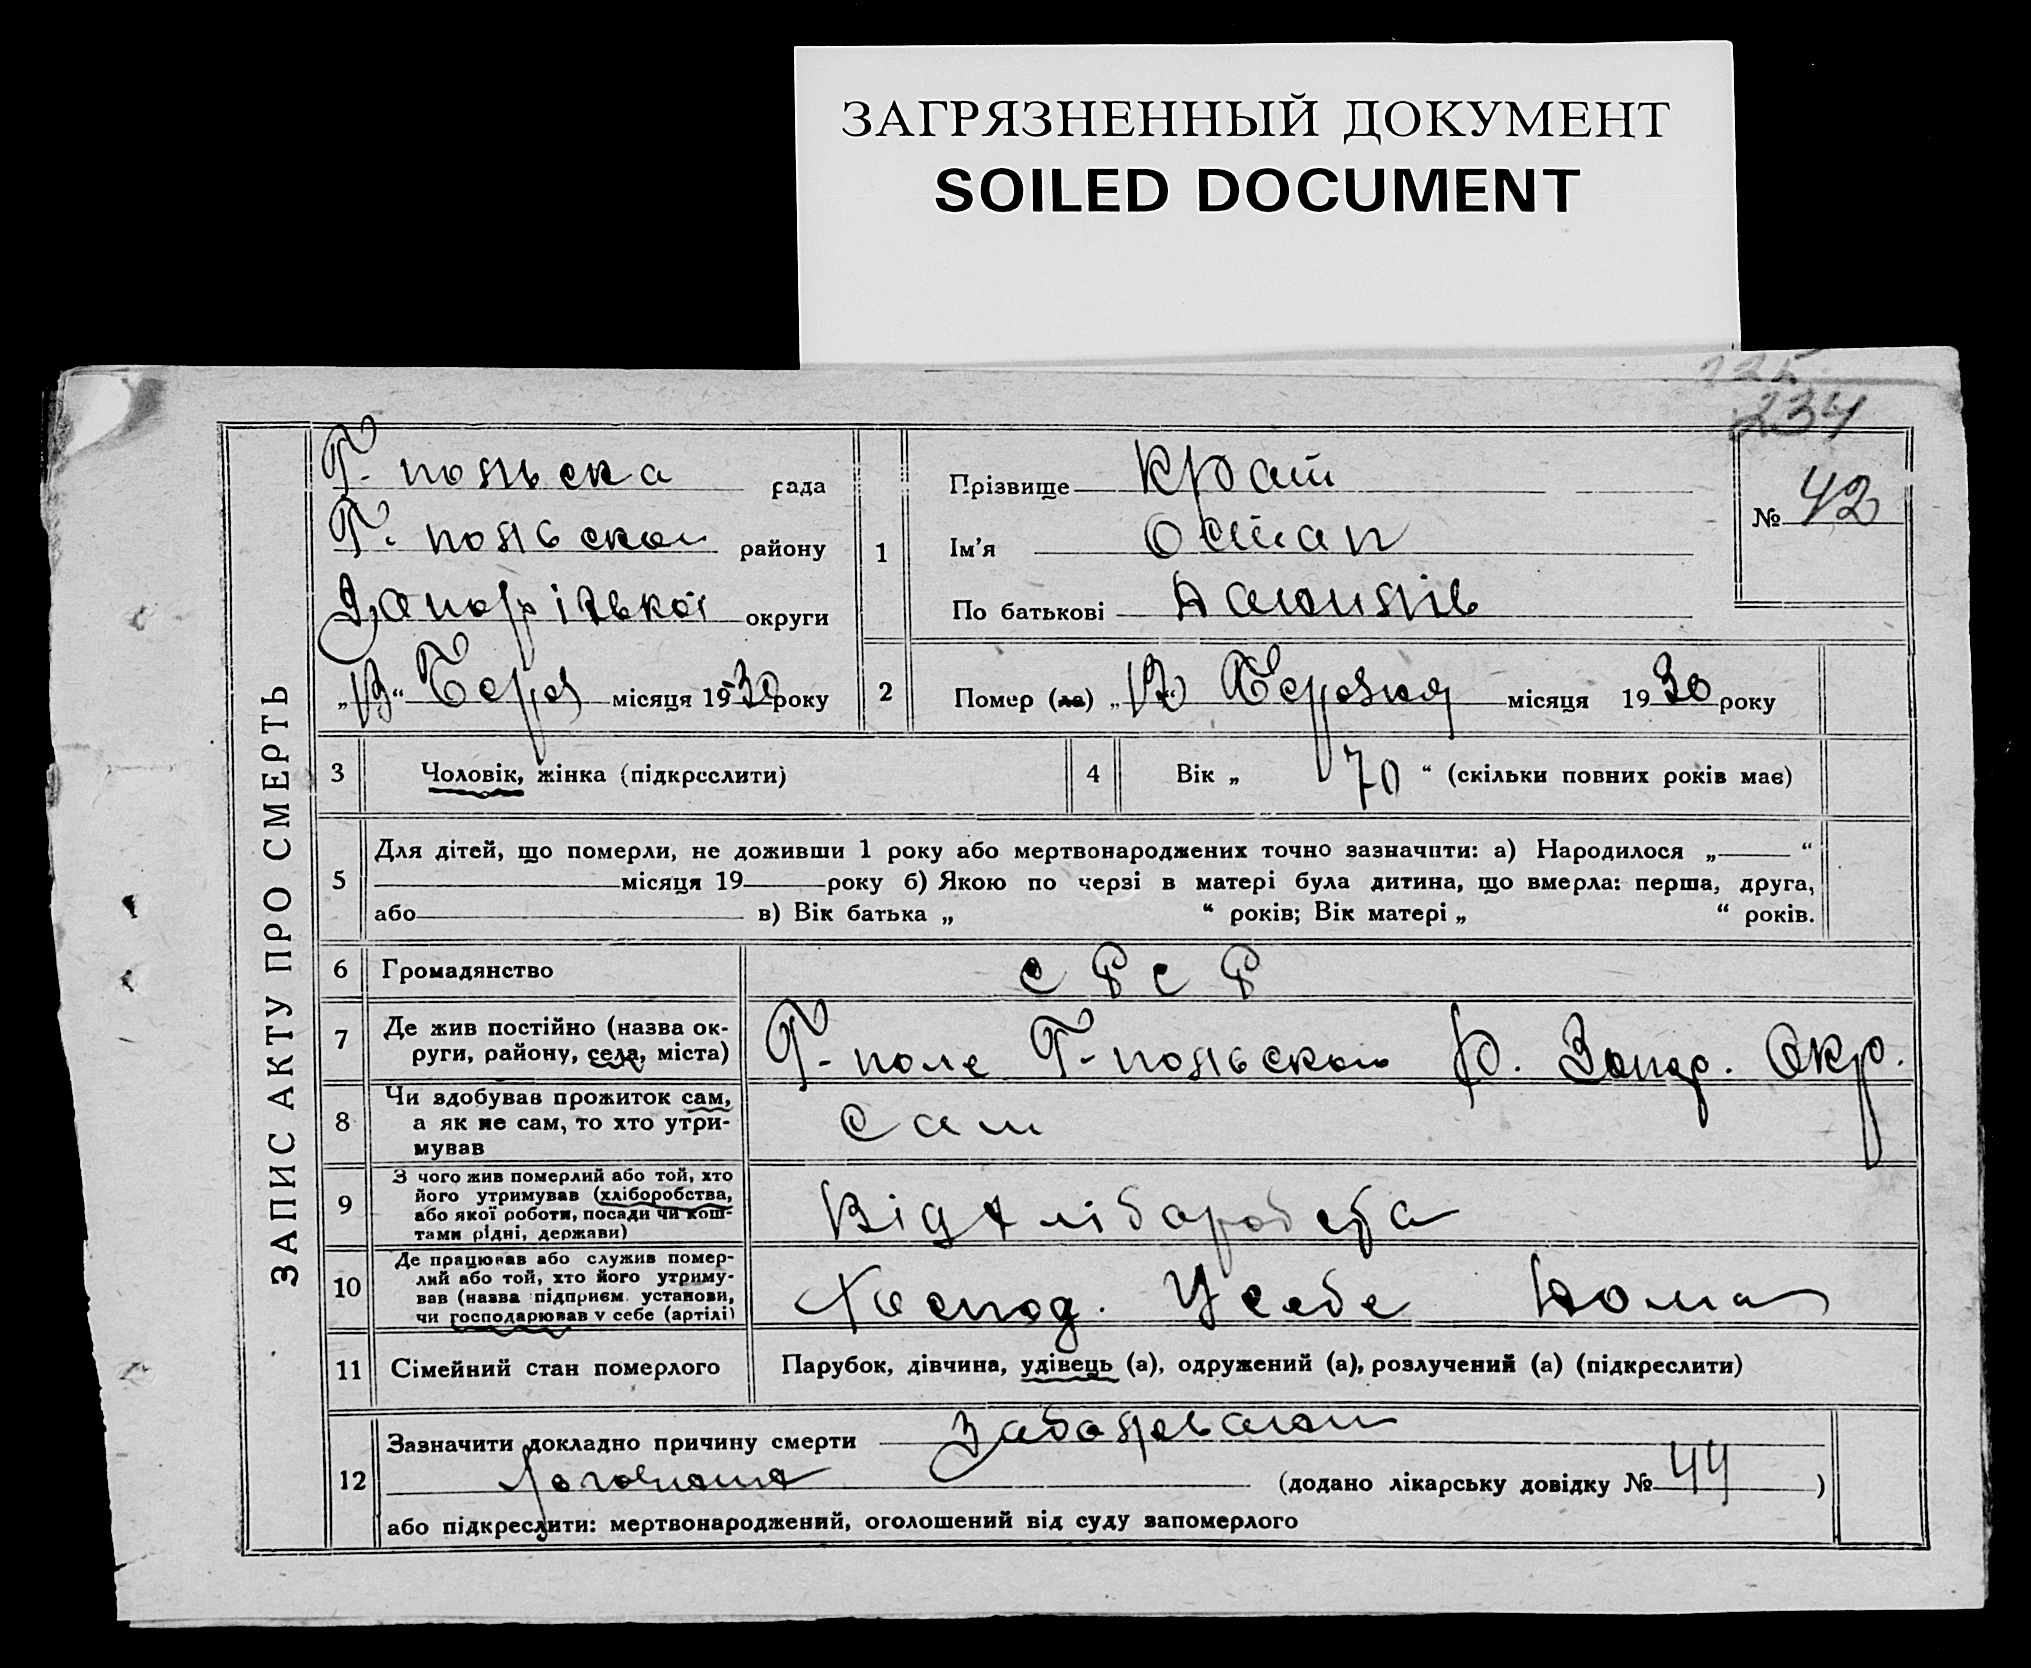 ЗАГРЯЗНЕННЫЙ ДОКУМЕНТ
SOILED DOCUMENT
234
ЗАПИС АКТУ ПРО СМЕРТЬ
Г.-польска рада
Г.-польского району
Запорізької округи
„13“ Берез місяця 1930 року
№ 42
1 Прізвище Крат
Ім'я Остап
По батькові
2 Помер (ла) „12“ Березня місяця 1930 року
3 Чоловік, жінка (підкреслити)
4 Вік „70“ (скільки повних років має)
5 Для дітей, що померли, не доживши 1 року або мертвонароджених точно зазначити: а) Народилося „ “
місяця 19 року б) Якою по черзі в матері була дитина, що вмерла: перша, друга,
або в) Вік батька „ “ років; Вік матері „ “ років.
6 Громадянство СРСР
7 Де жив постійно (назва ок-
руги, району, села, міста) Г-поле Г-польського Р. Запор. Окр.
8 Чи здобував прожиток сам,
а як не сам, то хто утри-
мував
Сам
9 З чого жив померлий або той, хто
його утримував (хліборобства,
або якої роботи, посади чи кош-
тами рідні, держави)
Від хліборобства
10 Де працював або служив помер-
лий або той, хто його утриму-
вав (назва підприєм. установи,
чи господарював у себе (артілі)
Господ. У себе дома
11 Сімейний стан померлого Парубок, дівчина, удівець (а), одружений (а), розлучений (а) (підкреслити)
12 Зазначити докладно причину смерти
(додано лікарську довідку № 44)
або підкреслити: мертвонароджений, оголошений від суду запомерлого